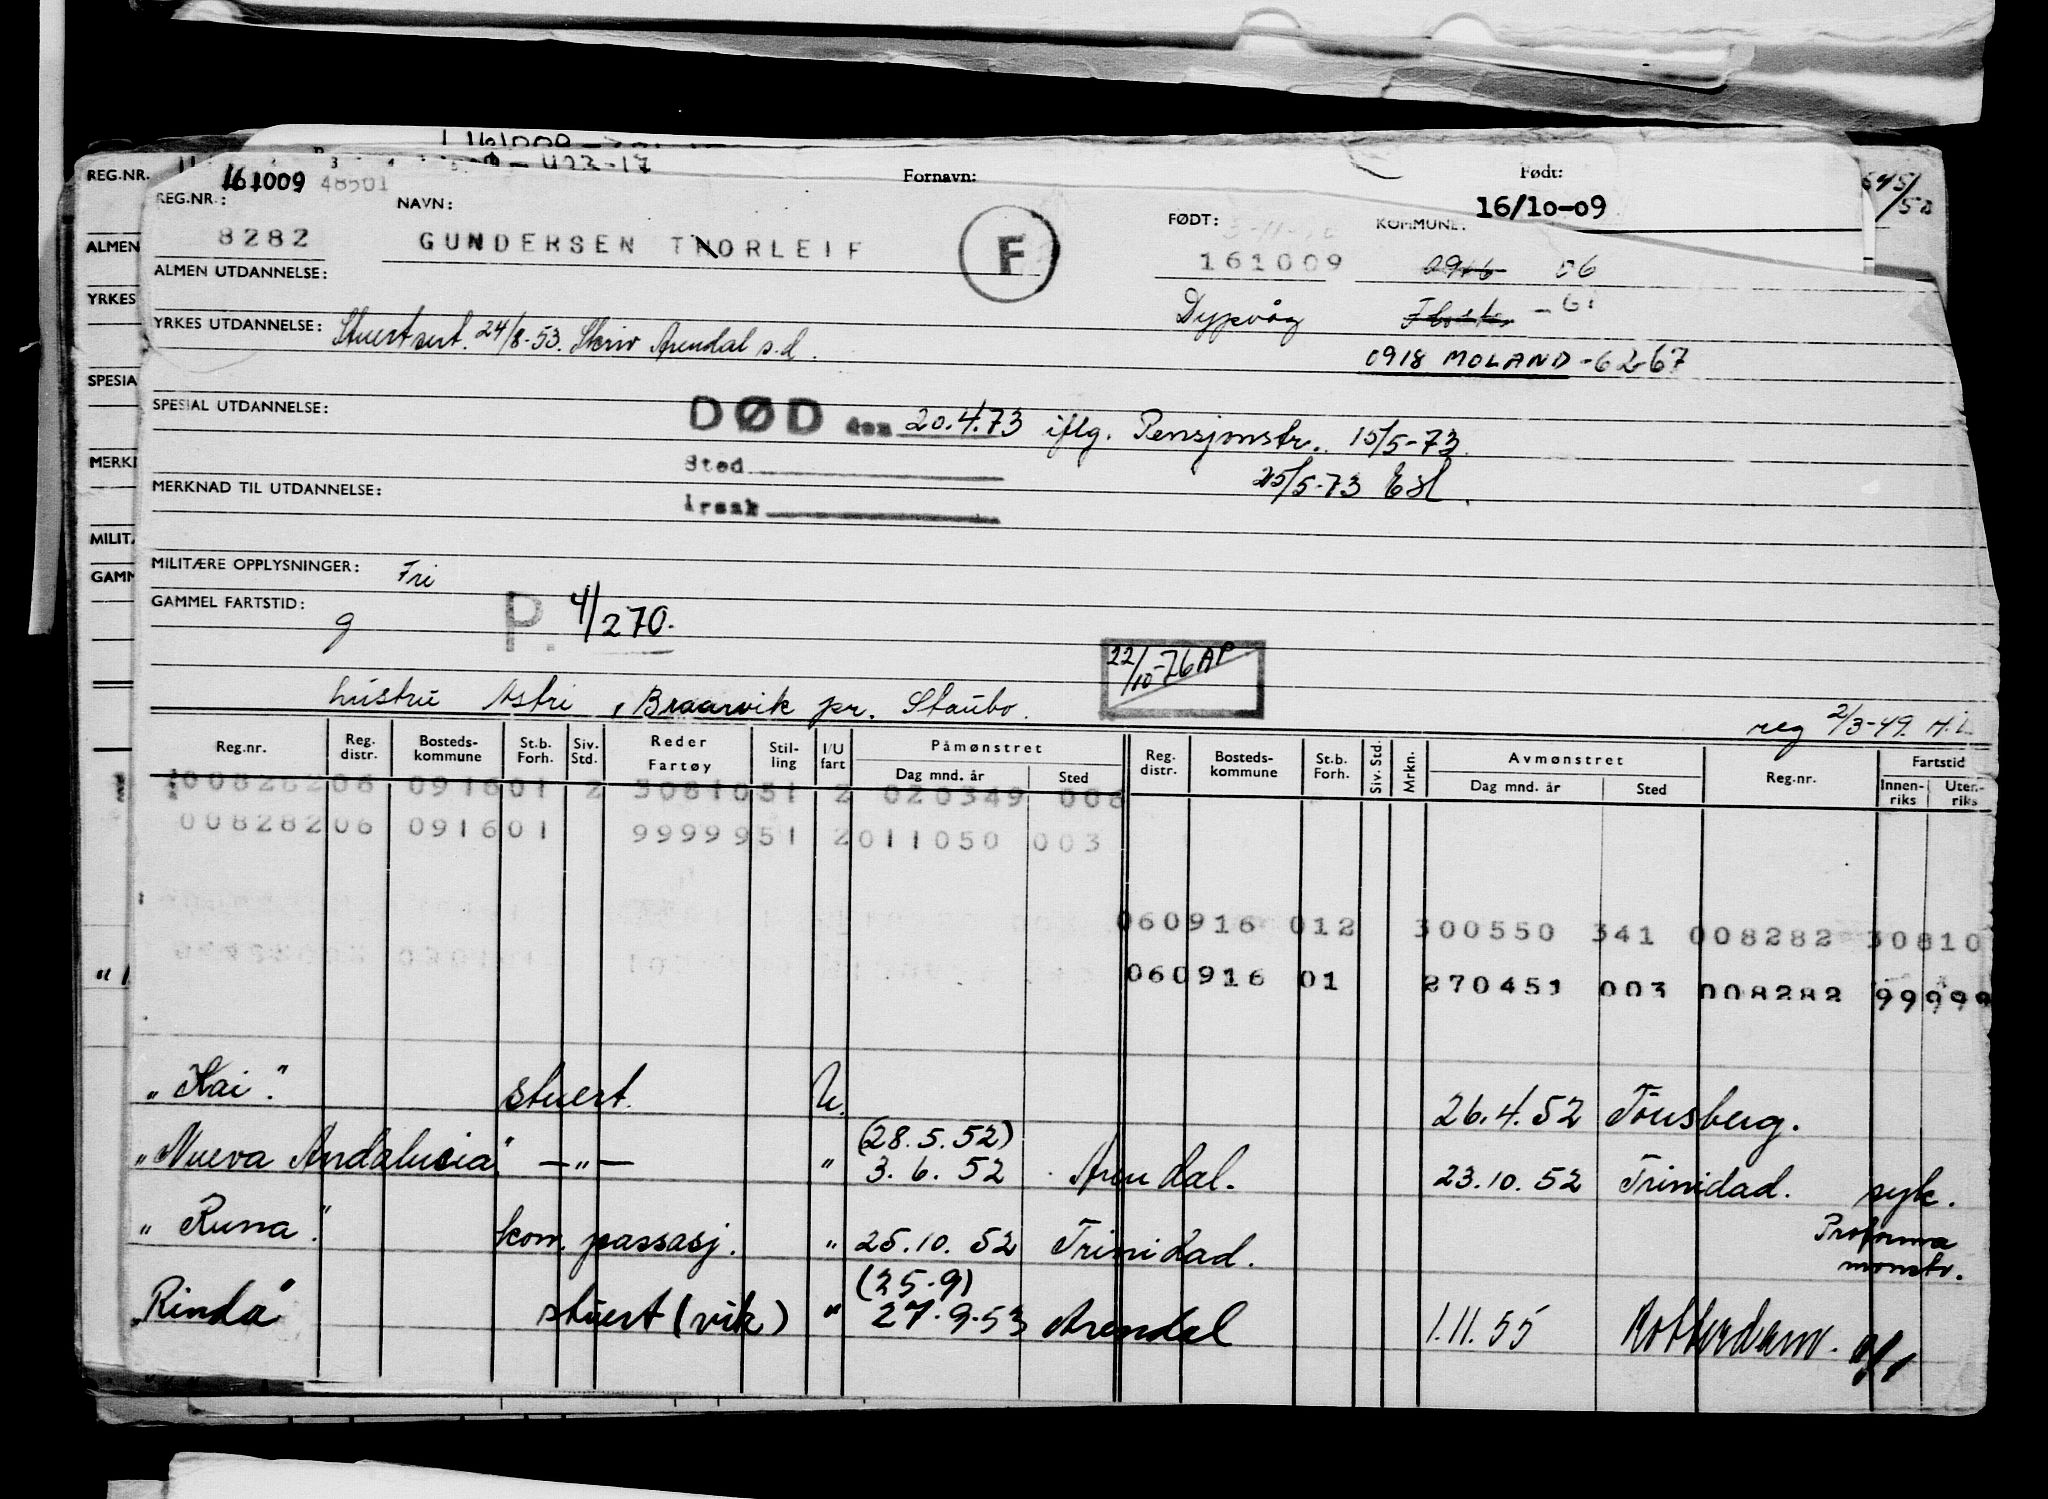 161009
-423-17
161009 48501
Fornavn:
Født:
16/10-09
645/50
REG.NR.
REG.NR.:
NAVN:
FØDT:
KOMMUNE:
8282
GUNDERSEN THORLEIF
F
161009
0916 06
ALMEN
ALMEN UTDANNELSE:
Dypvåg
Flosta - 61
YRKES
YRKES UTDANNELSE: Stuertsert. 24/8-53. Skriv Arendal s.d.
0918 MOLAND -6267
SPESIA
SPESIAL UTDANNELSE:
DØD den 20.4.73 iflg. Pensjonstr. 15/5-73.
MERKN
Sted
25/5-73 Esl.
MERKNAD TIL UTDANNELSE:
Årsak
MILITÆ
MILITÆRE OPPLYSNINGER: Fri
GAMM
GAMMEL FARTSTID: 9
P. 4/270.
22/10-76 AP
hustru Astri, Braarvik pr. Staubo.
reg 2/3-49. H.L.
Reg.nr. Reg. distr. Bosteds-kommune St.b. Forh. Siv. Std. Reder Fartøy Stil-ling I/U fart Påmønstret Dag mnd. år Sted Reg. distr. Bosteds-kommune St.b. Forh. Siv. Std. Mrkn. Avmønstret Dag mnd. år Sted Reg.nr. Fartstid Innen-riks Uten-riks
00828206 091601 2 3081051 2 020349 008
00828206 091601 9999951 2011050 003
060916 012 300550 341 008282 30810
060916 01 270451 003 008282 99999
"Kai". stuert. U. 26.4.52 Tönsberg.
(28.5.52)
"Nueva Andalucia" —"— " 3.6.52 Arendal. 23.10.52 Trinidad. syk.
"Runa". kom. passasj. " 25.10.52 Trinidad. Proforma mønstr.
(25.9)
"Rinda" stuert (vik) " 27.9.53 Arendal 1.11.55 Rotterdam.